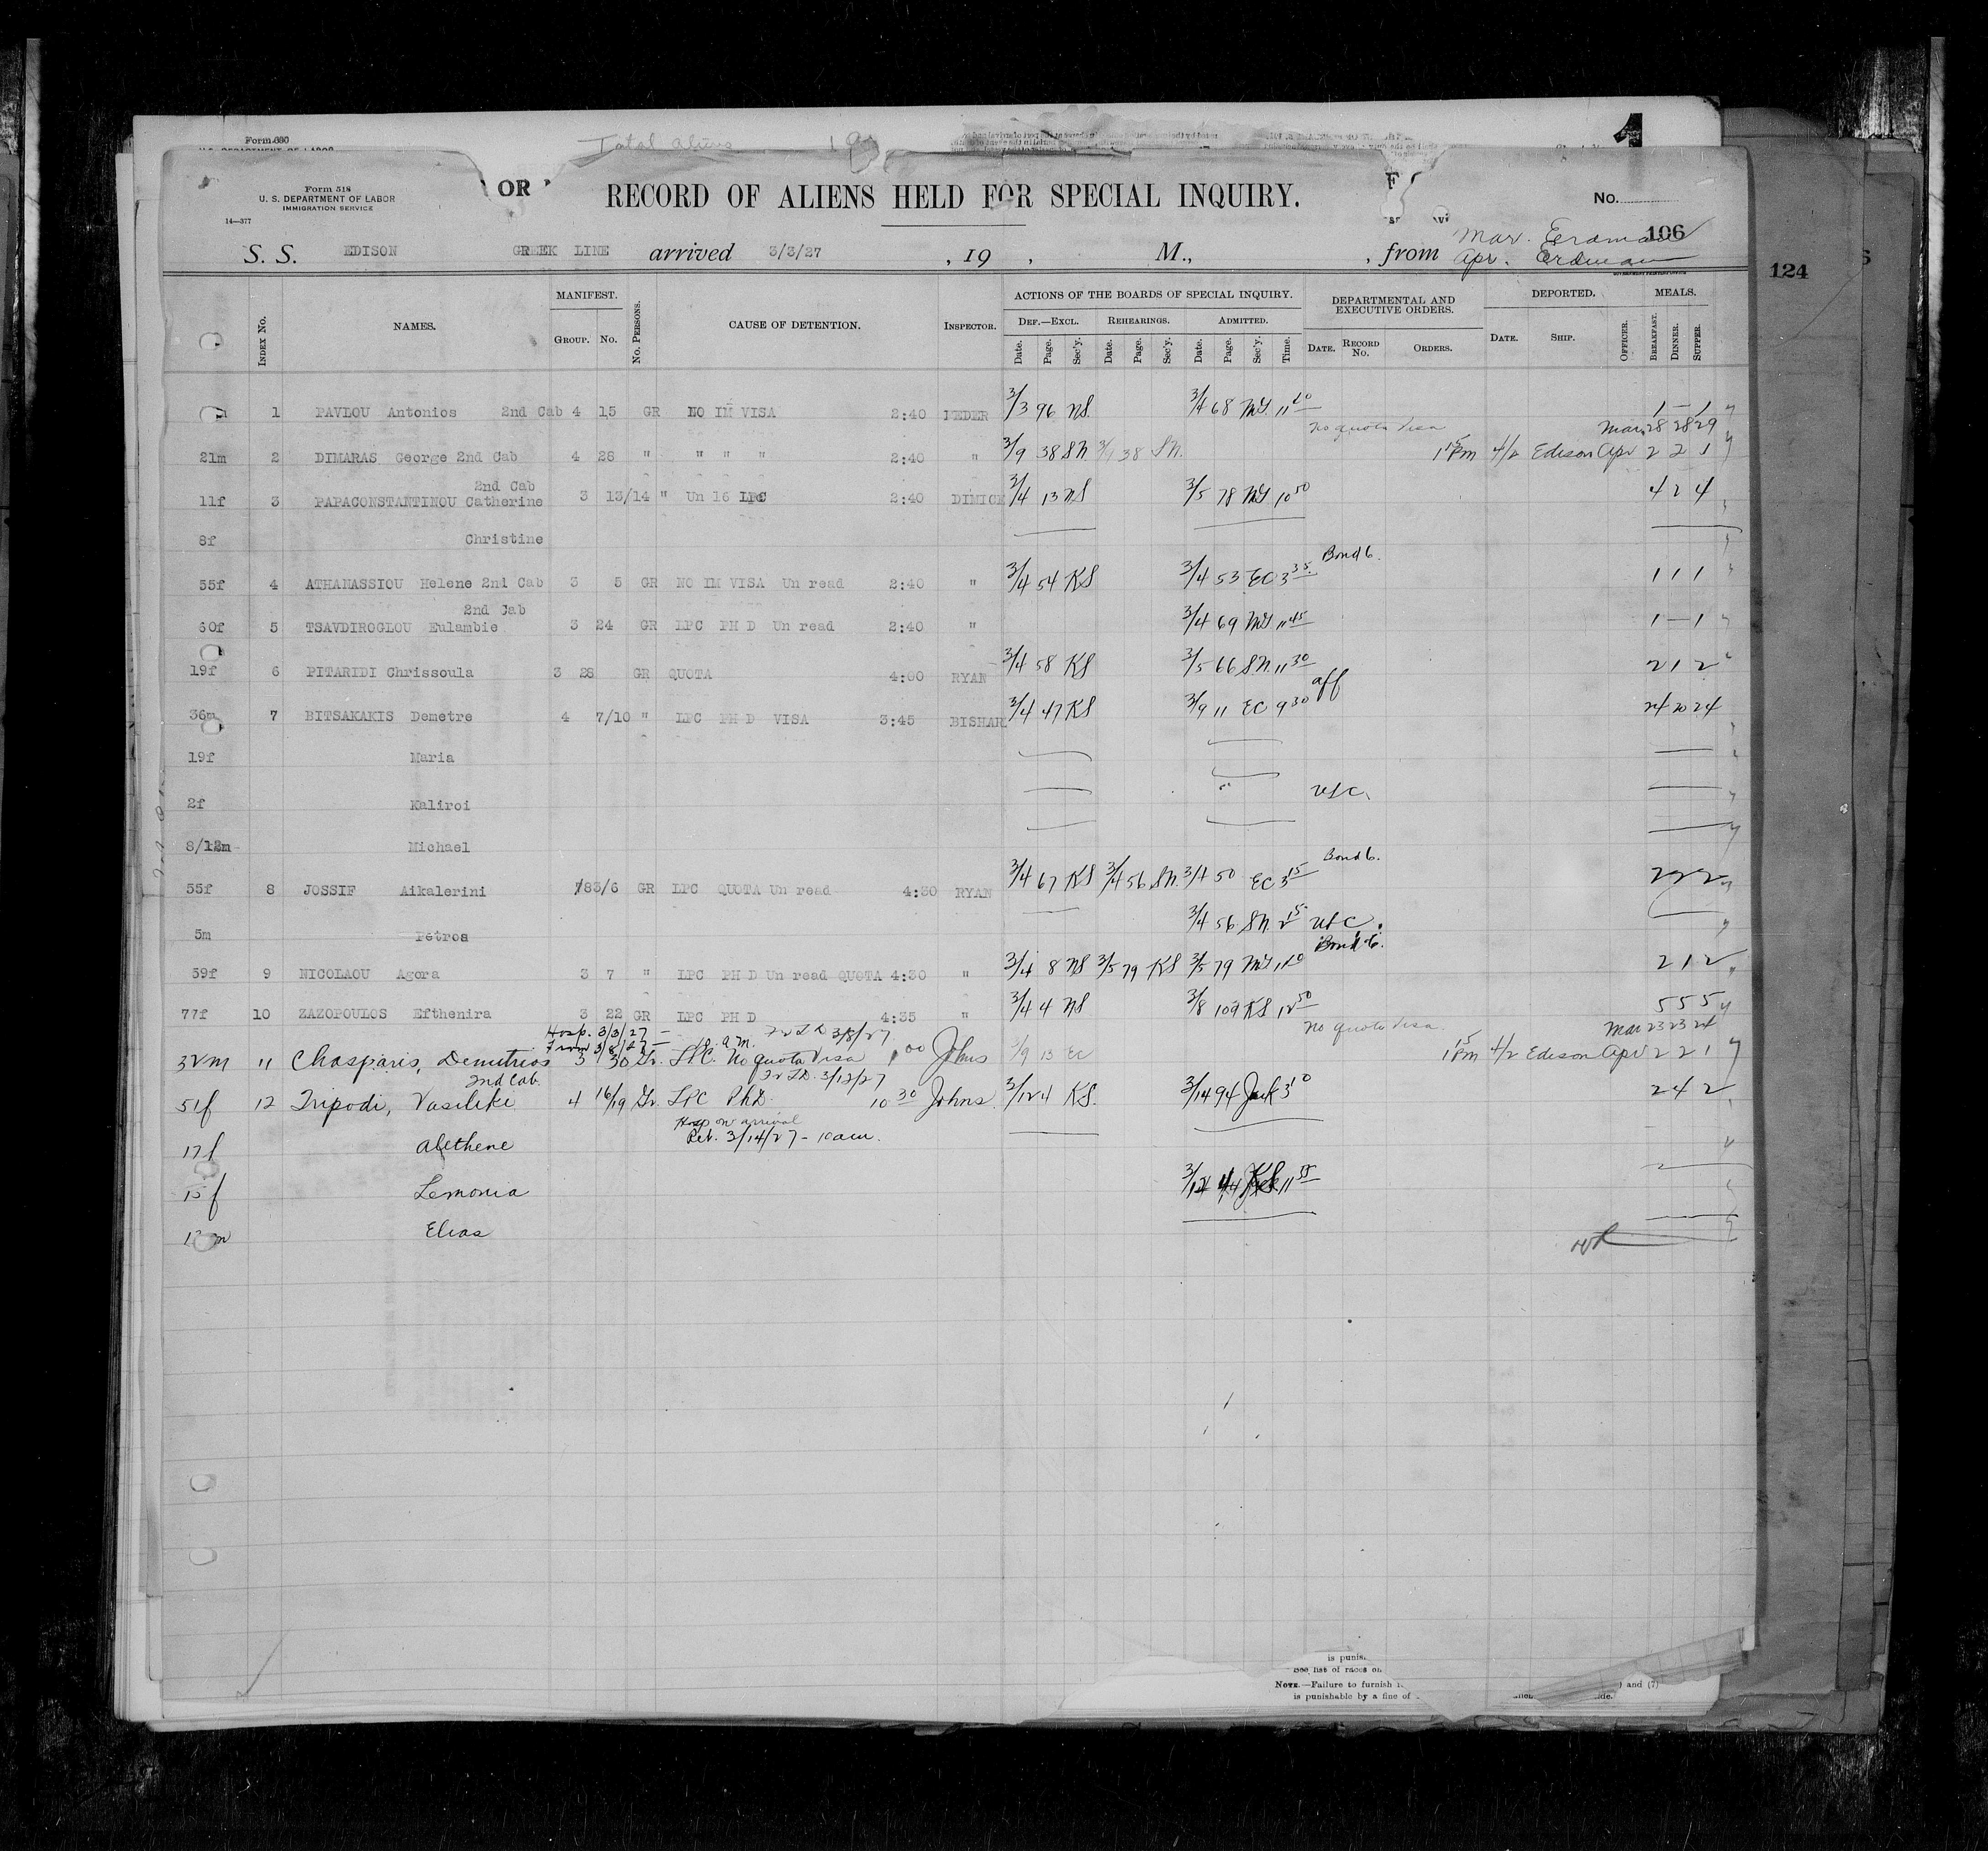 Form 630
Total aliens
Form 518
U. S. DEPARTMENT OF LABOR
IMMIGRATION SERVICE
14—377
OR
RECORD OF ALIENS HELD FOR SPECIAL INQUIRY.
No.
106
124
S. S. EDISON GREEK LINE arrived 3/3/27 , 19 , M., , from Mar. Erdman
Apr. Erdman
Index No. NAMES. MANIFEST. Group. No. No. Persons. CAUSE OF DETENTION. Inspector. ACTIONS OF THE BOARDS OF SPECIAL INQUIRY. DEPARTMENTAL AND EXECUTIVE ORDERS. DEPORTED. MEALS.
Def.—Excl. Rehearings. Admitted.
Date. Page. Sec'y. Date. Page. Sec'y. Date. Page. Sec'y. Time. Date. Record No. Orders. Date. Ship. Officer. Breakfast. Dinner. Supper.
1 PAVLOU Antonios 2nd Cab 4 15 GR NO IM VISA 2:40 FEDER 3/3 96 NS. 3/4 68 MY 11 20 1 — 1
No quota visa Mar. 28 28 29
21m 2 DIMARAS George 2nd Cab 4 28 " " " " 2:40 " 3/9 38 SN. 38 SN. 1 15 Pm 4/2 Edison Apr 2 2 1
2nd Cab
11f 3 PAPACONSTANTINOU Catherine 3 13/14 " Un 16 LPC 2:40 DIMICE 3/4 13 NS 3/5 78 MY 10 50 4 2 4
8f Christine
Bond 6.
55f 4 ATHANASSIOU Helene 2nd Cab 3 5 GR NO IM VISA Un read 2:40 " 3/4 54 KS 3/4 53 EC 3 35 1 1 1
2nd Cab
60f 5 TSAVDIROGLOU Eulambie 3 24 GR LPC PH D Un read 2:40 " 3/4 69 MY 11 45 1 — 1
19f 6 PITARIDI Chrissoula 3 28 GR QUOTA 4:00 RYAN 3/4 58 KS 3/5 66 SN. 11 30 2 1 2
aff
36m 7 BITSAKAKIS Demetre 4 7/10 " LPC PH D VISA 3:45 BISHAR 3/4 47 KS 3/9 11 EC 9 30 24 20 24
19f Maria
2f Kaliroi USC.
8/12m Michael
Bond 6.
55f 8 JOSSIF Aikalerini 3/6 GR LPC QUOTA Un read 4:30 RYAN 3/4 67 KS 3/4 56 SN. 3/4 50 EC 3 15 2 2 2
5m Petros 3/4 56 SN. 2 15 USC.
Bond 6.
59f 9 NICOLAOU Agora 3 7 " LPC PH D Un read QUOTA 4:30 " 3/4 8 NS 3/5 79 KS 3/5 79 MY 11 10 2 1 2
77f 10 ZAZOPOULOS Efthenira 3 22 GR LPC PH D 4:35 " 3/4 4 NS 3/8 109 KS 12 50 5 5 5
Hosp. 3/3/27 — No quota visa Mar 23 23 24
From 3/8/27 — a.m. 3/8/27
32m 11 Chasparis, Demetrios 3 30 Gr. LPC. No quota visa 1 00 Johns 3/9 13 EC 1 15 Pm 4/2 Edison Apr 2 2 1
2nd Cab. 3/12/27
51f 12 Tripodi, Vasiliki 4 16/19 Gr. LPC PhD 10 30 Johns. 3/12 4 KS. 3/14 94 Jack 3 10 2 4 2
Hosp on arrival
17f Alethene Ret. 3/14/27 - 10 am.
15f Lemonia 3/12
Elias
is punis
See list of races on
Note.—Failure to furnish ) and (7)
is punishable by a fine of